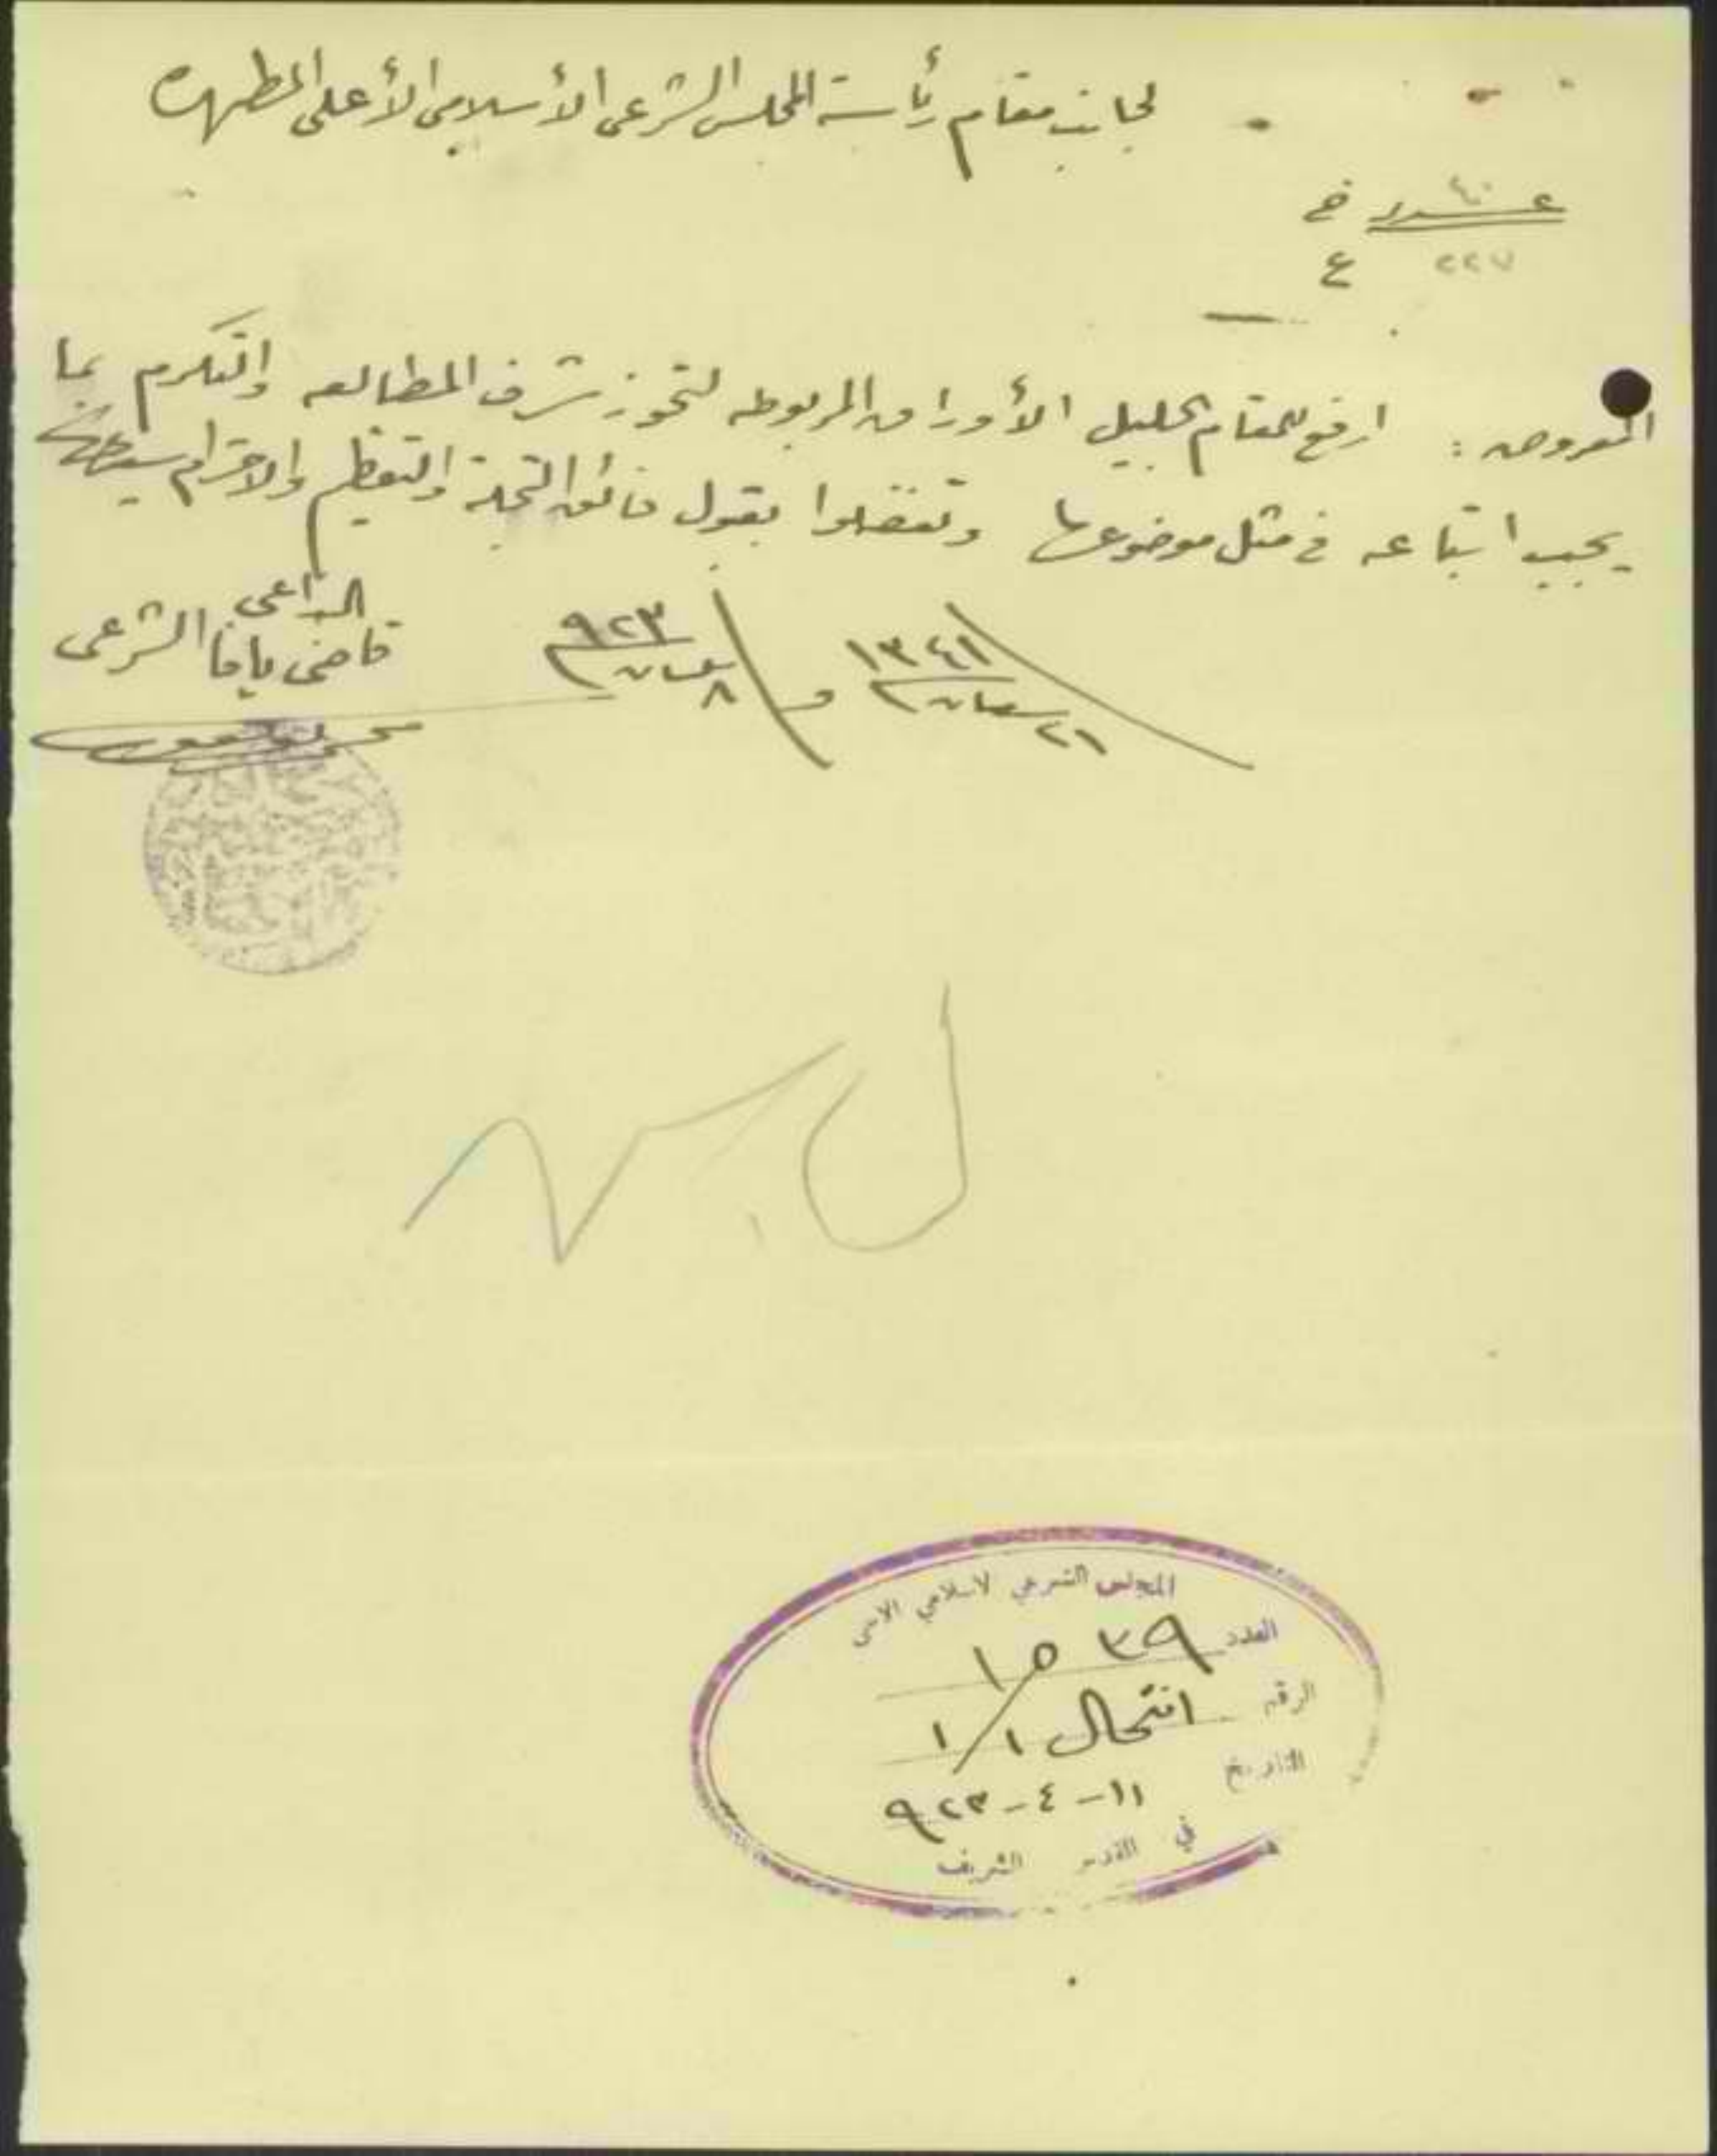 لجانب مقام رئاسة المجلس الشرعي الأسلامي الأعلى المطهره
عدد
٢٢٧ ع
المعروض: ارفع للمقام الجليل الأوراق المربوطه لتحوز شرف المطالعه والتكرم بما
يجب اتباعه في مثل موضوعها وتفضلوا بقبول فائق التجلة والتعظيم والاحترام
٢١ شعبان ١٣٤١ و ٨ نيسان ٩٢٣
الداعي
قاضي يافا الشرعي
المجلس الشرعي الاسلامي الاعلى
العدد ١٥٣٩
الرقم انتحال ١/١
التاريخ ١١-٤-٩٢٣
في القدس الشريف